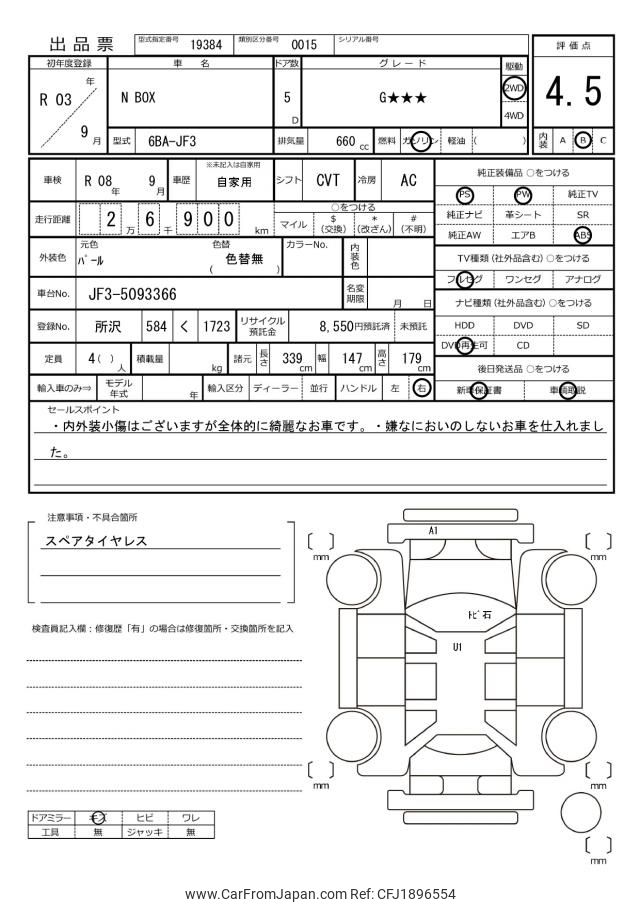 出品票
型式指定番号 19384 類別区分番号 0015 シリアル番号
評価点
4.5
内装 A B C
初年度登録 車名 ドア数 グレード 駆動
R 03 年 9 月
N BOX
5 D
G★★★
2WD
4WD
型式 6BA-JF3 排気量 660 cc 燃料 ガソリン 軽油 ( )
車検 R 08 年 9 月 車歴 ※未記入は自家用 自家用 シフト CVT 冷房 AC
走行距離 2 万 6 千 9 0 0 km
○をつける
マイル $ (交換) * (改ざん) # (不明)
外装色 元色 パール 色替 ( 色替無 ) カラーNo. 内装色
車台No. JF3-5093366 名変期限 月 日
登録No. 所沢 584 く 1723 リサイクル預託金 8,550円預託済 未預託
定員 4 ( ) 人 積載量 kg 諸元 長さ 339 cm 幅 147 cm 高さ 179 cm
輸入車のみ⇒ モデル年式 年 輸入区分 ディーラー 並行 ハンドル 左 右
純正装備品 ○をつける
PS PW 純正TV
純正ナビ 革シート SR
純正AW エアB ABS
TV種類 (社外品含む) ○をつける
フルセグ ワンセグ アナログ
ナビ種類 (社外品含む) ○をつける
HDD DVD SD
DVD再生可 CD
後日発送品 ○をつける
新車保証書 車輌取説
セールスポイント
・内外装小傷はございますが全体的に綺麗なお車です。・嫌なにおいのしないお車を仕入れまし
た。
注意事項・不具合箇所
スペアタイヤレス
検査員記入欄：修復歴「有」の場合は修復箇所・交換箇所を記入
A1
mm
mm
トビ石
U1
mm
mm
mm
ドアミラー キズ ヒビ ワレ
工具 無 ジャッキ 無
www.CarFromJapan.com Ref: CFJ1896554